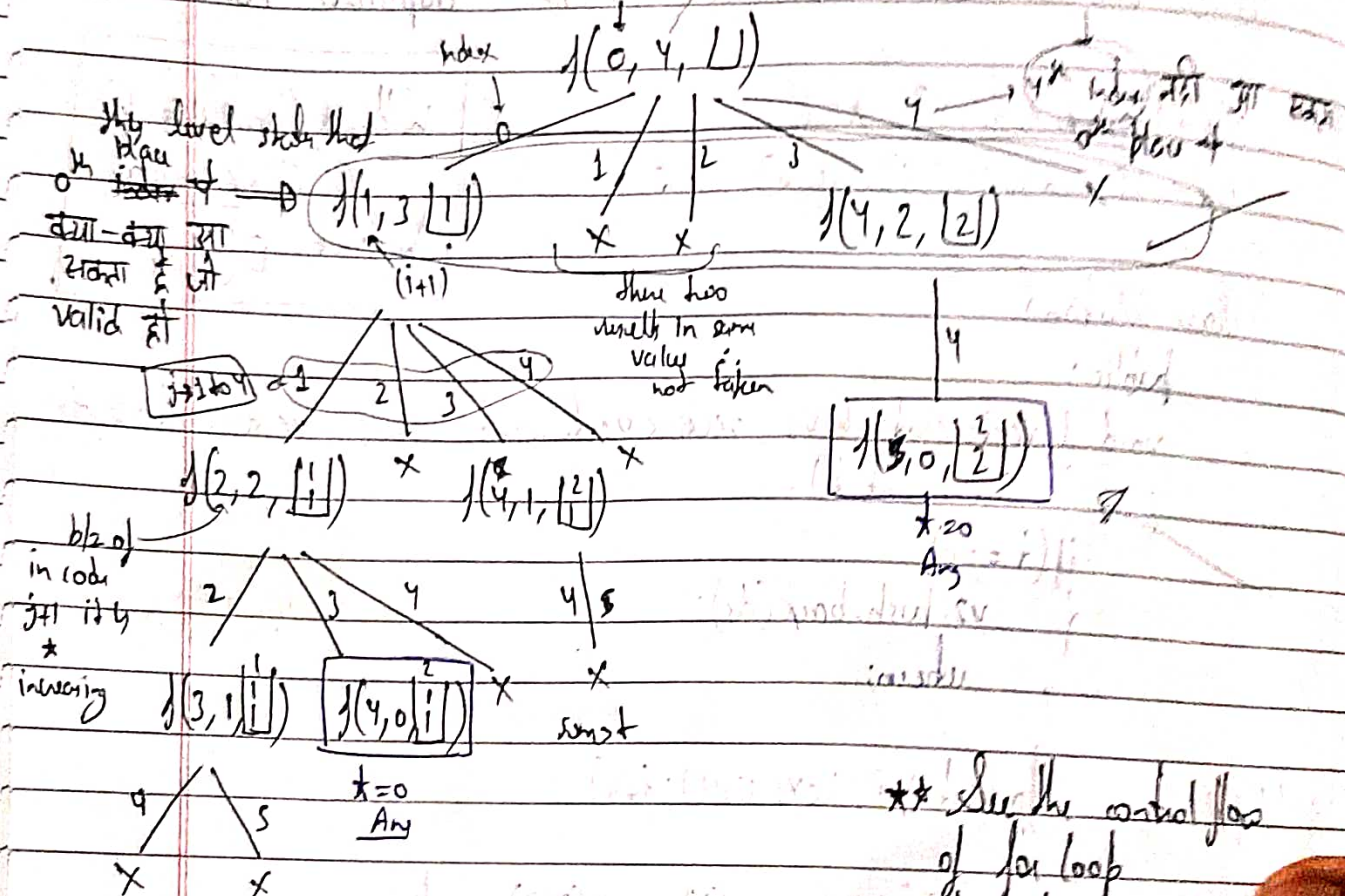 index
f(0, 4, [])
0
1
2
3
4
4th index नही आ सकता
0th place पर
this level states that
0th place पे
क्या-क्या आ
सकता है जो
valid हो
f(1, 3 [1])
x x
f(4, 2, [2])
x
(i+1)
these two
results in same
value
not taken
j→1 to 4
1 2 3 4
4
f(2, 2, [1 1])
x
f(4, 1, [2 1])
x
f(5, 0, [2 2])
* = 0
Ans
b/z of
in code
j+1 it is
*
increasing
2 3 4
4 5
f(3, 1 [1 1 1])
f(4, 0 [2 1 1])
x
x
* = 0
Ans
4 5
x x
** See the control flow
of for loop